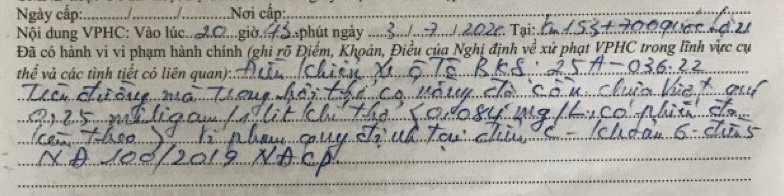 Ngày cấp:......../......../........Nơi cấp:
Nội dung VPHC: Vào lúc 20 giờ 43 phút ngày 3 / 7 / 2020 Tại: Km 153+700 Quốc lộ 21
Đã có hành vi vi phạm hành chính (ghi rõ Điểm, Khoản, Điều của Nghị định về xử phạt VPHC trong lĩnh vực cụ
thể và các tình tiết có liên quan): Điều khiển xe ô tô BKS: 25A-036.22
Trên đường mà trong hơi thở có nồng độ cồn chưa vượt quá
0,25 miligam/1 lít khí thở (0,084 mg/L, có phiếu đo
kèm theo) Vi phạm quy định tại điểm c - khoản 6 - điều 5
NĐ 100/2019 NĐCP.